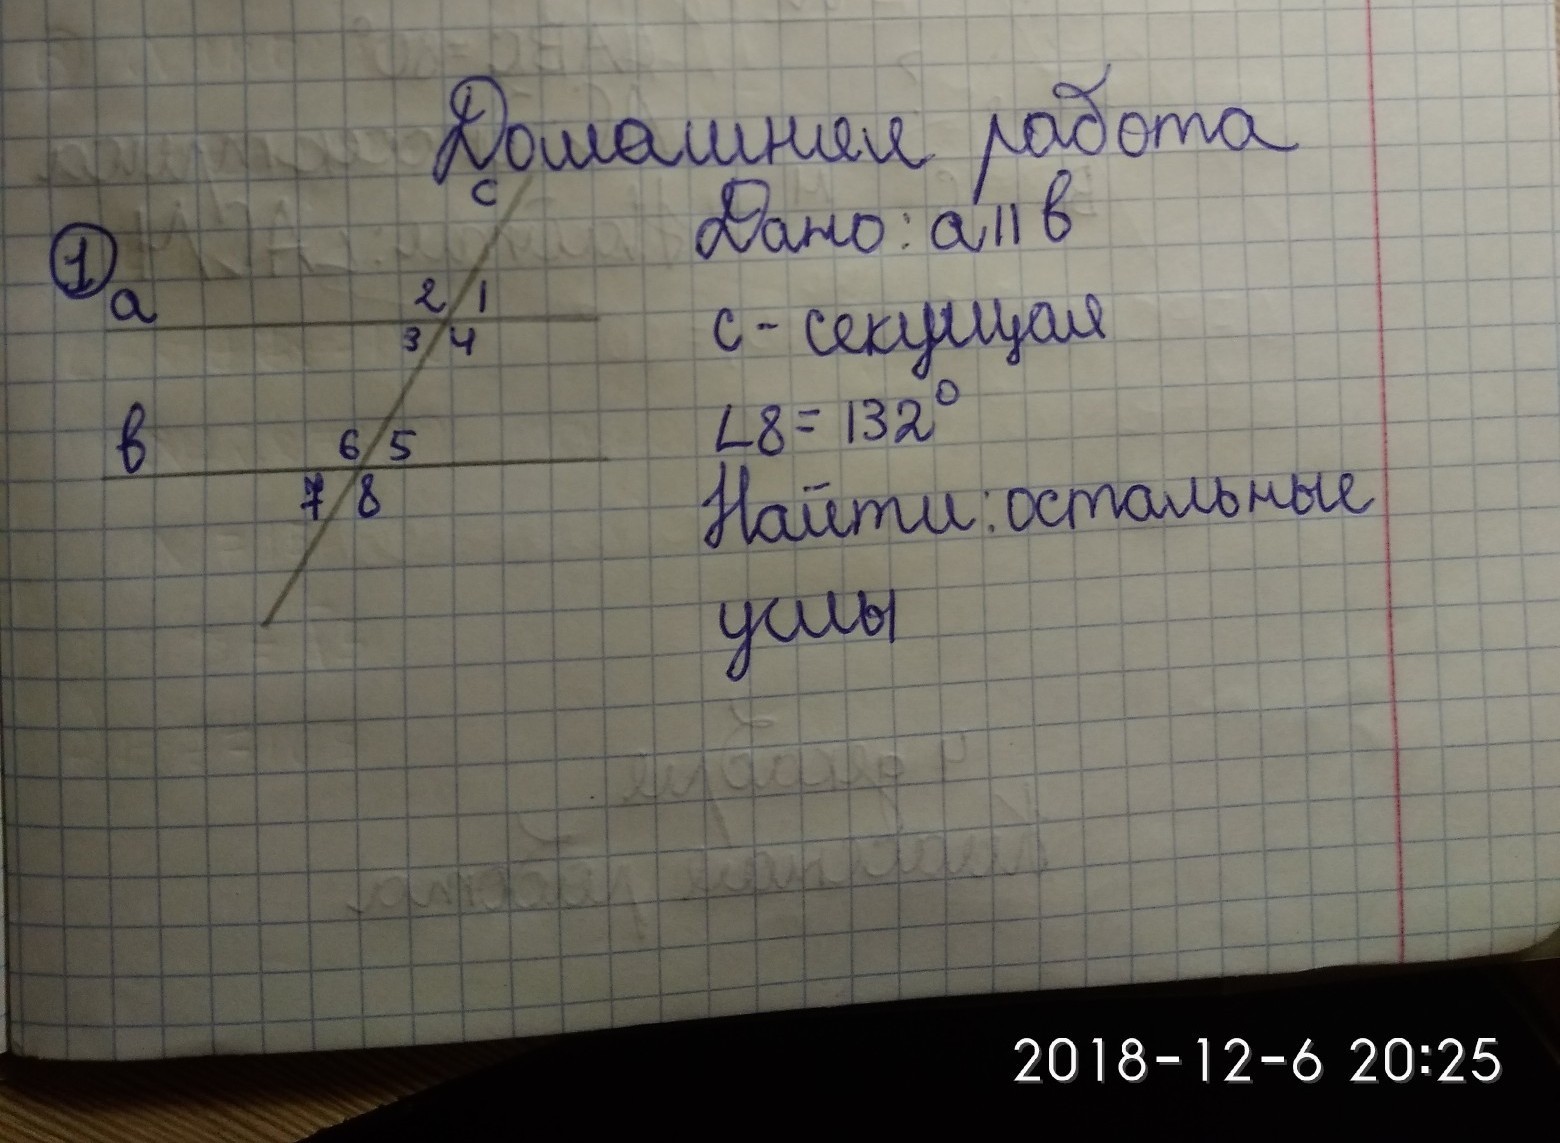 Домашняя работа
c
Дано: a || в
1
a
2 1
3 4
c - секущая
∠8 = 132°
в
6 5
7 8
Найти: остальные
углы
2018-12-6 20:25